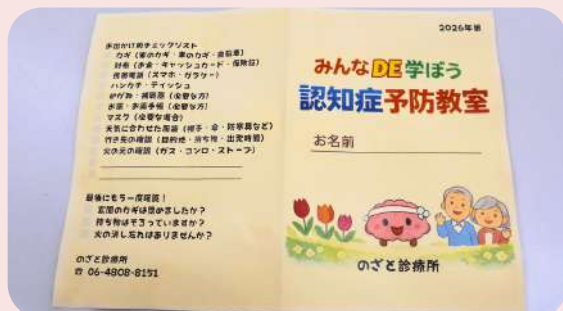 お出かけ前チェックリスト
カギ（家のカギ・車のカギ・自転車）
財布（お金・キャッシュカード・保険証）
携帯電話（スマホ・ガラケー）
ハンカチ・ティッシュ
めがね・補聴器（必要な方）
お薬・お薬手帳（必要な方）
マスク（必要な場合）
天気に合わせた服装（帽子・傘・防寒具など）
行き先の確認（目的地・持ち物・出発時間）
火の元の確認（ガス・コンロ・ストーブ）
最後にもう一度確認！
玄関のカギは閉めましたか？
持ち物はそろっていますか？
火の消し忘れはありませんか？
のざと診療所
☎ 06-4808-8151
2026年度
みんなDE学ぼう
認知症予防教室
お名前
のざと診療所